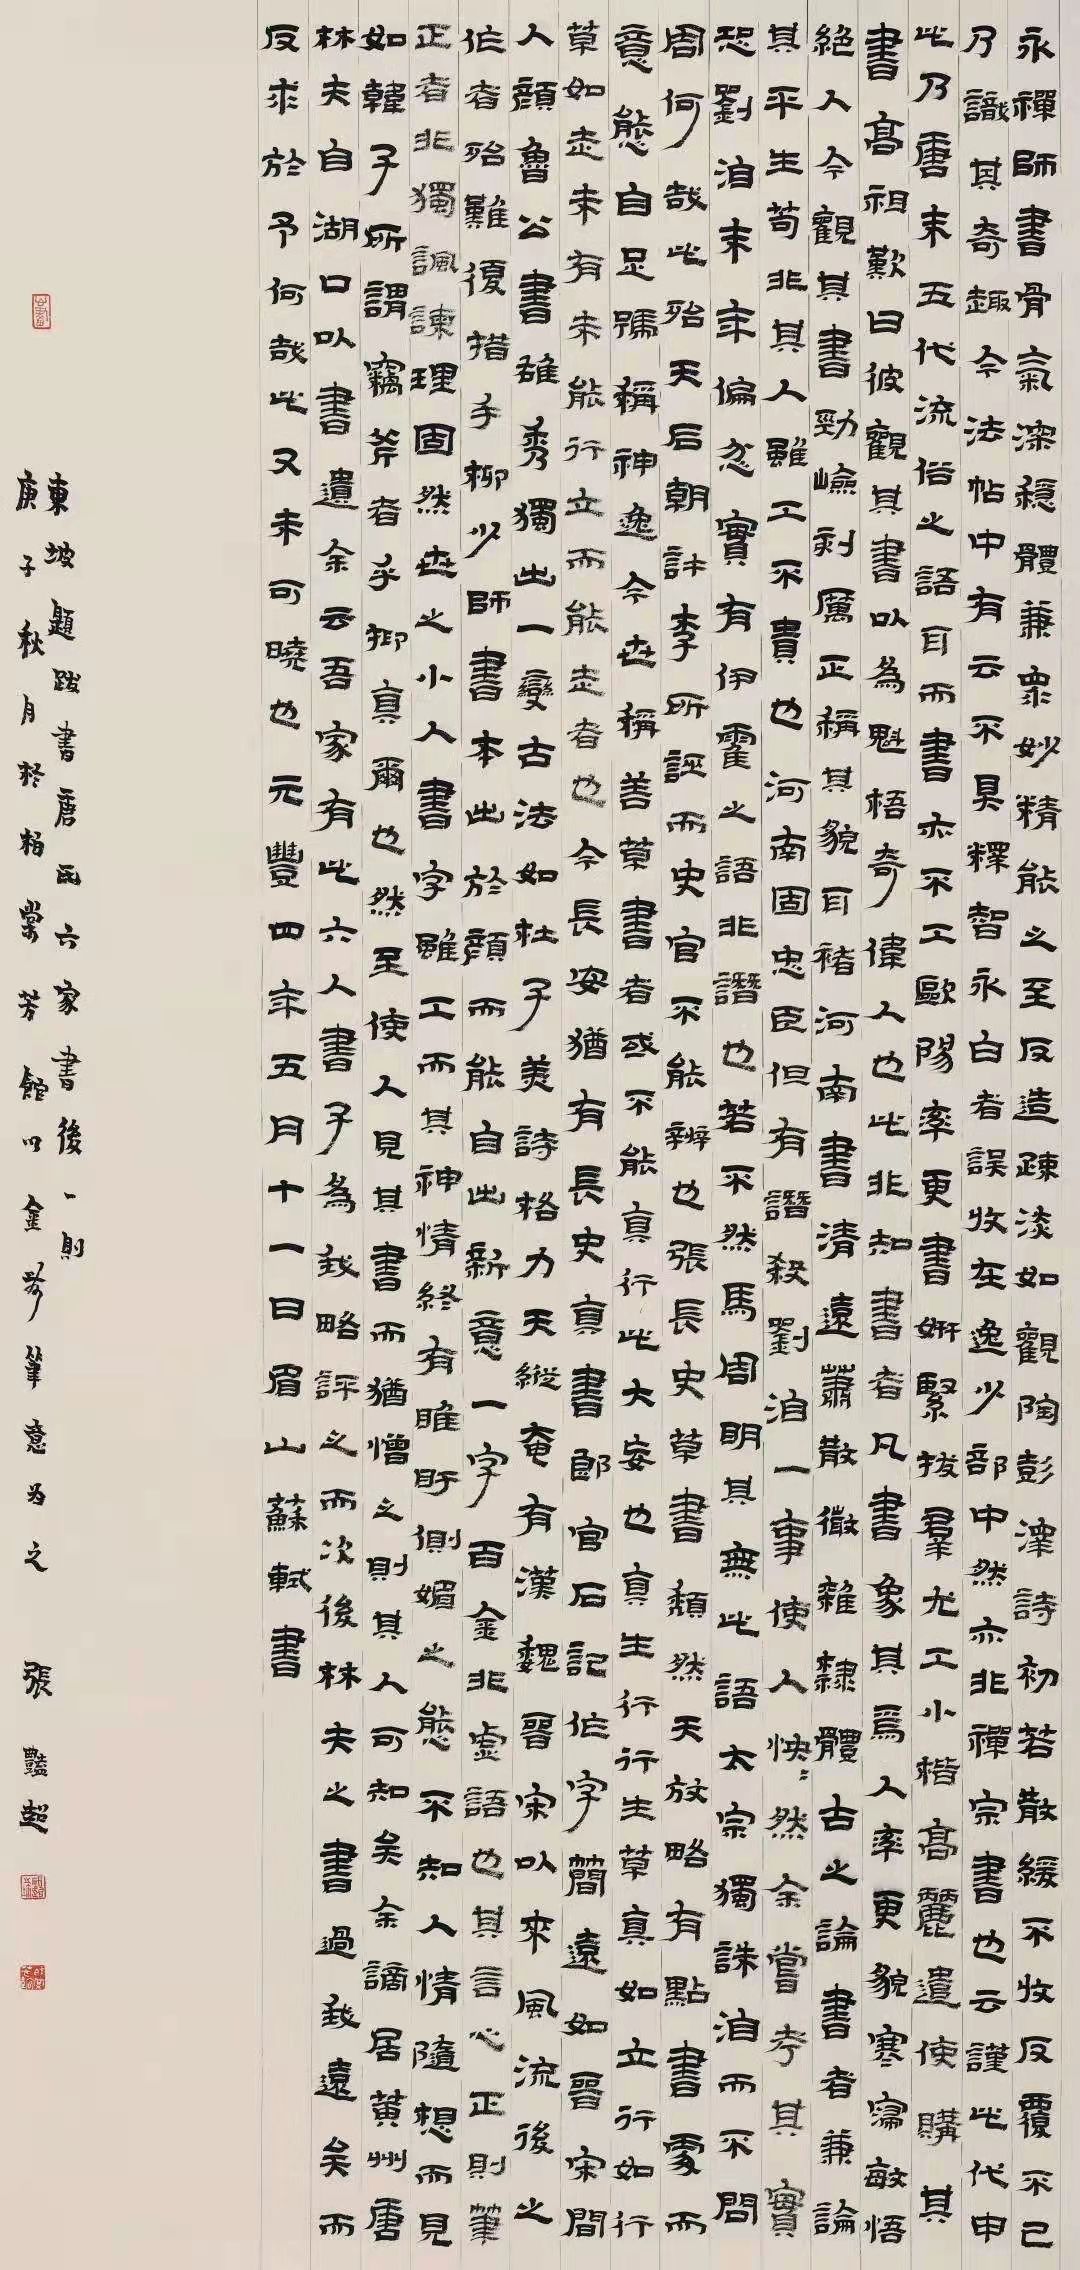 永禪師書骨氣深穩體兼眾妙精能之至反造疎淡如觀陶彭澤詩初若散緩不收反覆不已
乃識其奇趣今法帖中有云不具釋智永白者誤收在逸少部中然亦非禪宗書也云謹此代申
此乃唐末五代流俗之語耳而書亦不工歐陽率更書妍緊拔羣尤工小楷高麗遣使購其
書高祖歎曰彼觀其書以為魁梧奇偉人也此非知書者凡書象其爲人率更貌寒寢敏悟
絕人今觀其書勁嶮刻厲正稱其貌耳褚河南書清遠蕭散微雜隸體古之論書者兼論
其平生苟非其人雖工不貴也河南固忠臣但有譖殺劉洎一事使人怏〻然余嘗考其實
恐劉洎末年偏忿實有伊霍之語非譖也若不然馬周明其無此語太宗獨誅洎而不問
周何哉此殆天后朝許李所誣而史官不能辨也張長史草書頹然天放略有點畫處而
意態自足號稱神逸今世稱善草書者或不能真行此大妄也真生行行生草真如立行如行
草如走未有未能行立而能走者也今長安猶有長史真書郎官石記作字簡遠如晉宋間
人顏魯公書雄秀獨出一變古法如杜子美詩格力天縱奄有漢魏晉宋以來風流後之
作者殆難復措手柳少師書本出於顏而能自出新意一字百金非虛語也其言心正則筆
正者非獨諷諫理固然世之小人書字雖工而其神情終有睢盱側媚之態不知人情隨想而見
如韓子所謂竊斧者乎抑真爾也然至使人見其書而猶憎之則其人可知矣余謫居黃州唐
林夫自湖口以書遺余云吾家有此六人書子為我略評之而次後林夫之書過我遠矣而
反求於予何哉此又未可曉也元豐四年五月十一日眉山蘇軾書
東坡題跋書唐氏六家書後一則
庚子秋月於柏棠芳館以金農筆意為之 張豔超